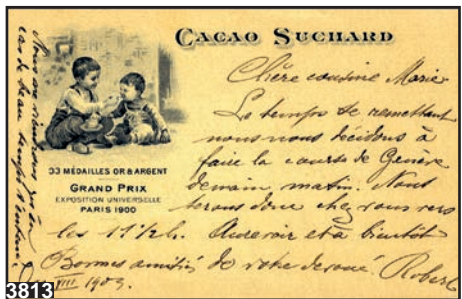 CACAO SUCHARD
33 MÉDAILLES OR & ARGENT
GRAND PRIX
EXPOSITION UNIVERSELLE
PARIS 1900
Chère cousine Marie
Le temps se remettant
nous nous décidons à
faire la course de Genève
demain matin. Nous
serons donc chez vous vers
les 11 1/2 h. Au revoir et à bientôt
Bonnes amitiés de votre dévoué. Robert
VIII 1903.
Nous ne viendrons qu'en
cas de beau temps
3813